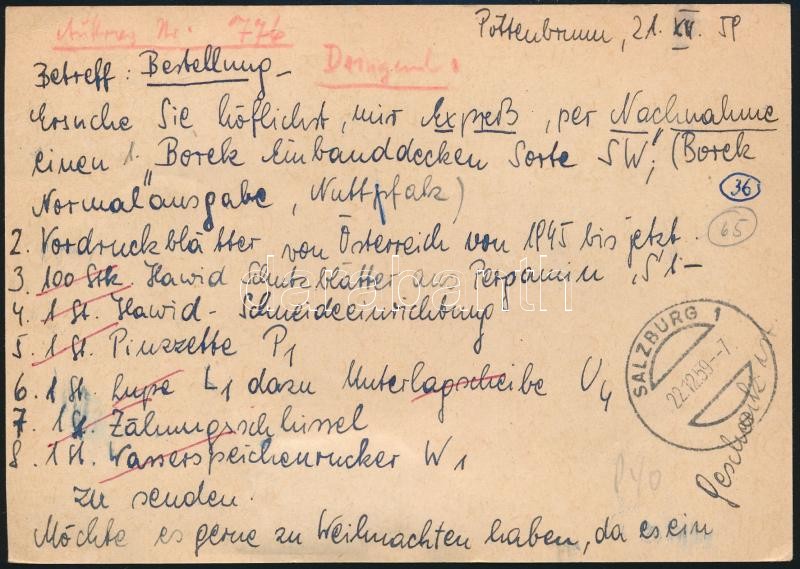 Auftrag Nr. 776
Pottenbrunn, 21. XII. 59
Betreff: Bestellung
Dringend!
Ersuche Sie höflichst, mir Expreß, per Nachnahme
einen 1. Borek Einbanddecken Sorte SW, (Borek
Normalausgabe, Nuttpfalz)
36
2. Vordruckblätter von Österreich von 1945 bis jetzt.
65
3. 100 Stk Hawid Schutzblätter aus Pergamin, S1-
4. 1 St. Hawid-Schneideeinrichtung
darabanth
5. 1 St. Pinzzette P1
SALZBURG 1
22.12.59--7
6. 1 St. Lupe L1 dazu Unterlagscheibe U4
7. 1 St. Zähnungsschlüssel
8. 1 St. Wasserspeichenrucker W1
zu senden.
Möchte es gerne zu Weihnachten haben, da es ein